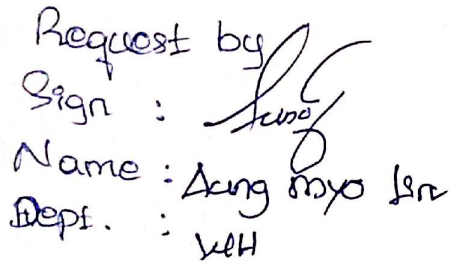 Request by
Sign :
Name : Aung myo
Dept. : WH